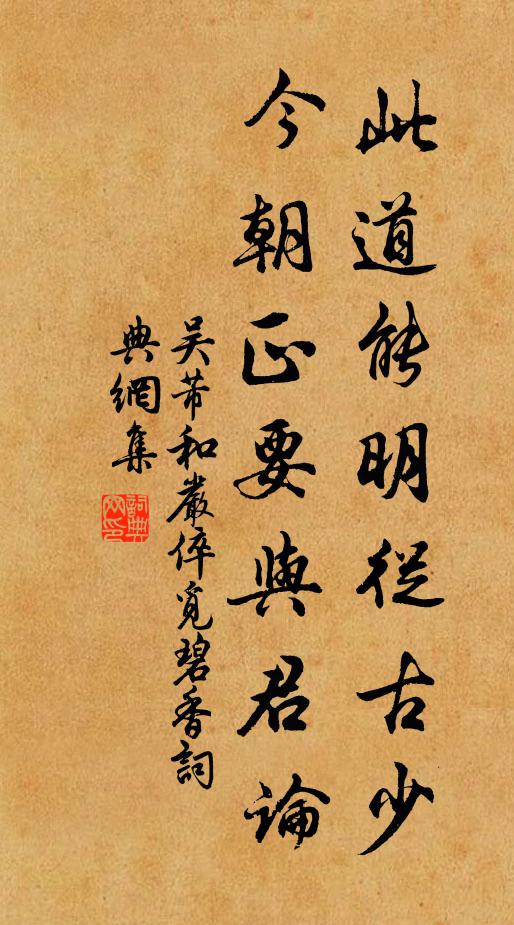 此道能明從古少
今朝正要與君論
吳芾和嚴倅覓碧香詞
典網集
詞典網印